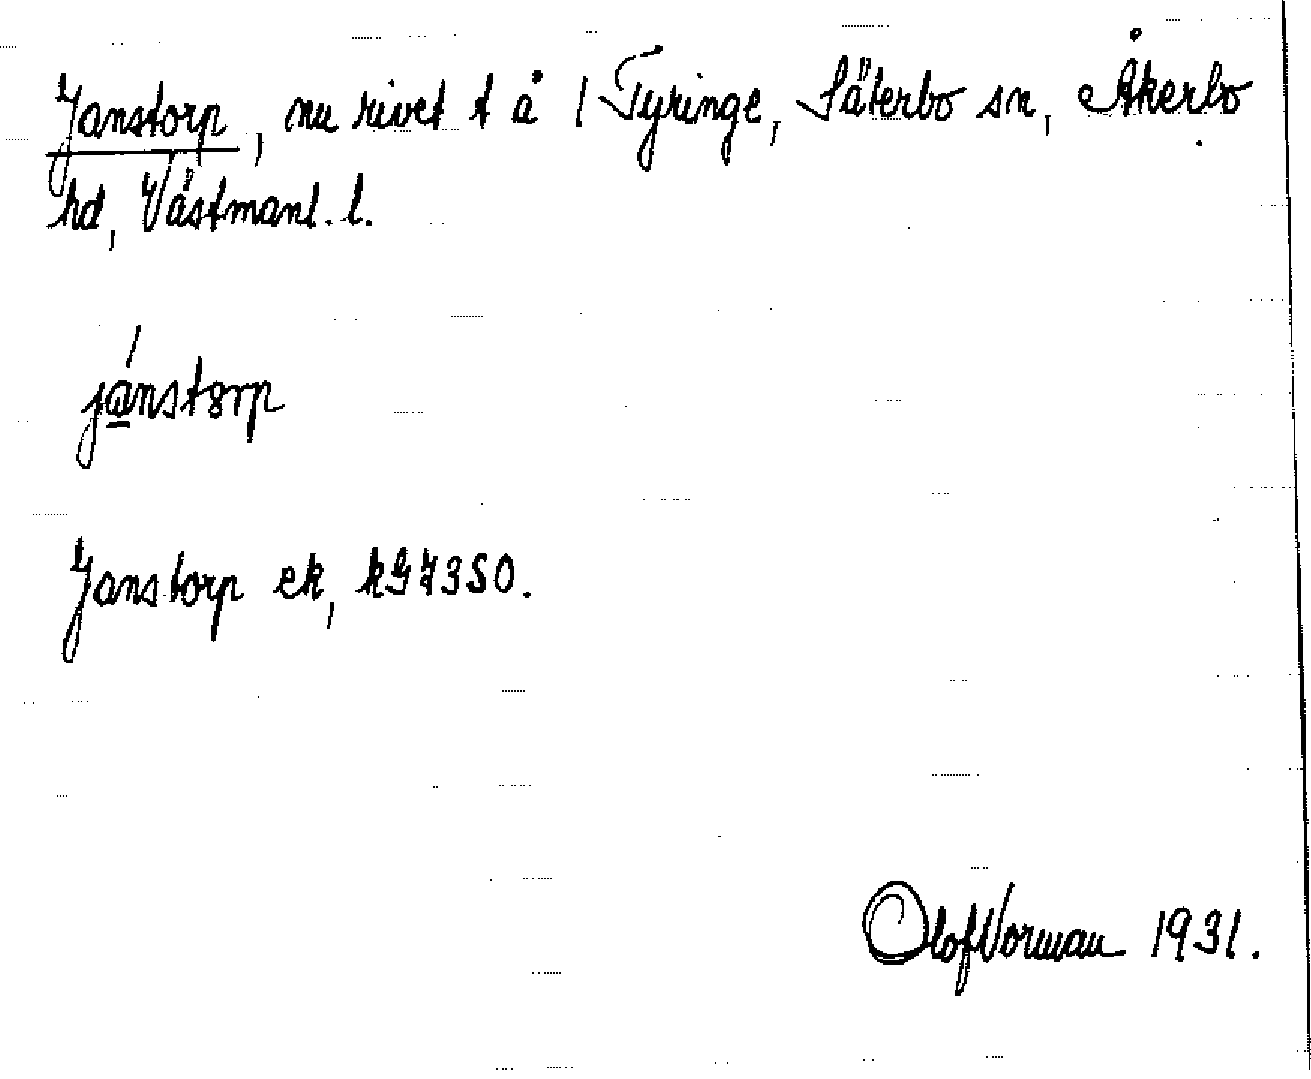 Janstorp, nu rivet t å 1 Tyringe, Säterbo sn, Åkerbo
hd, Västmanl. l.
jánstorp
Janstorp ek, kG7350.
Olof Norman 1931.